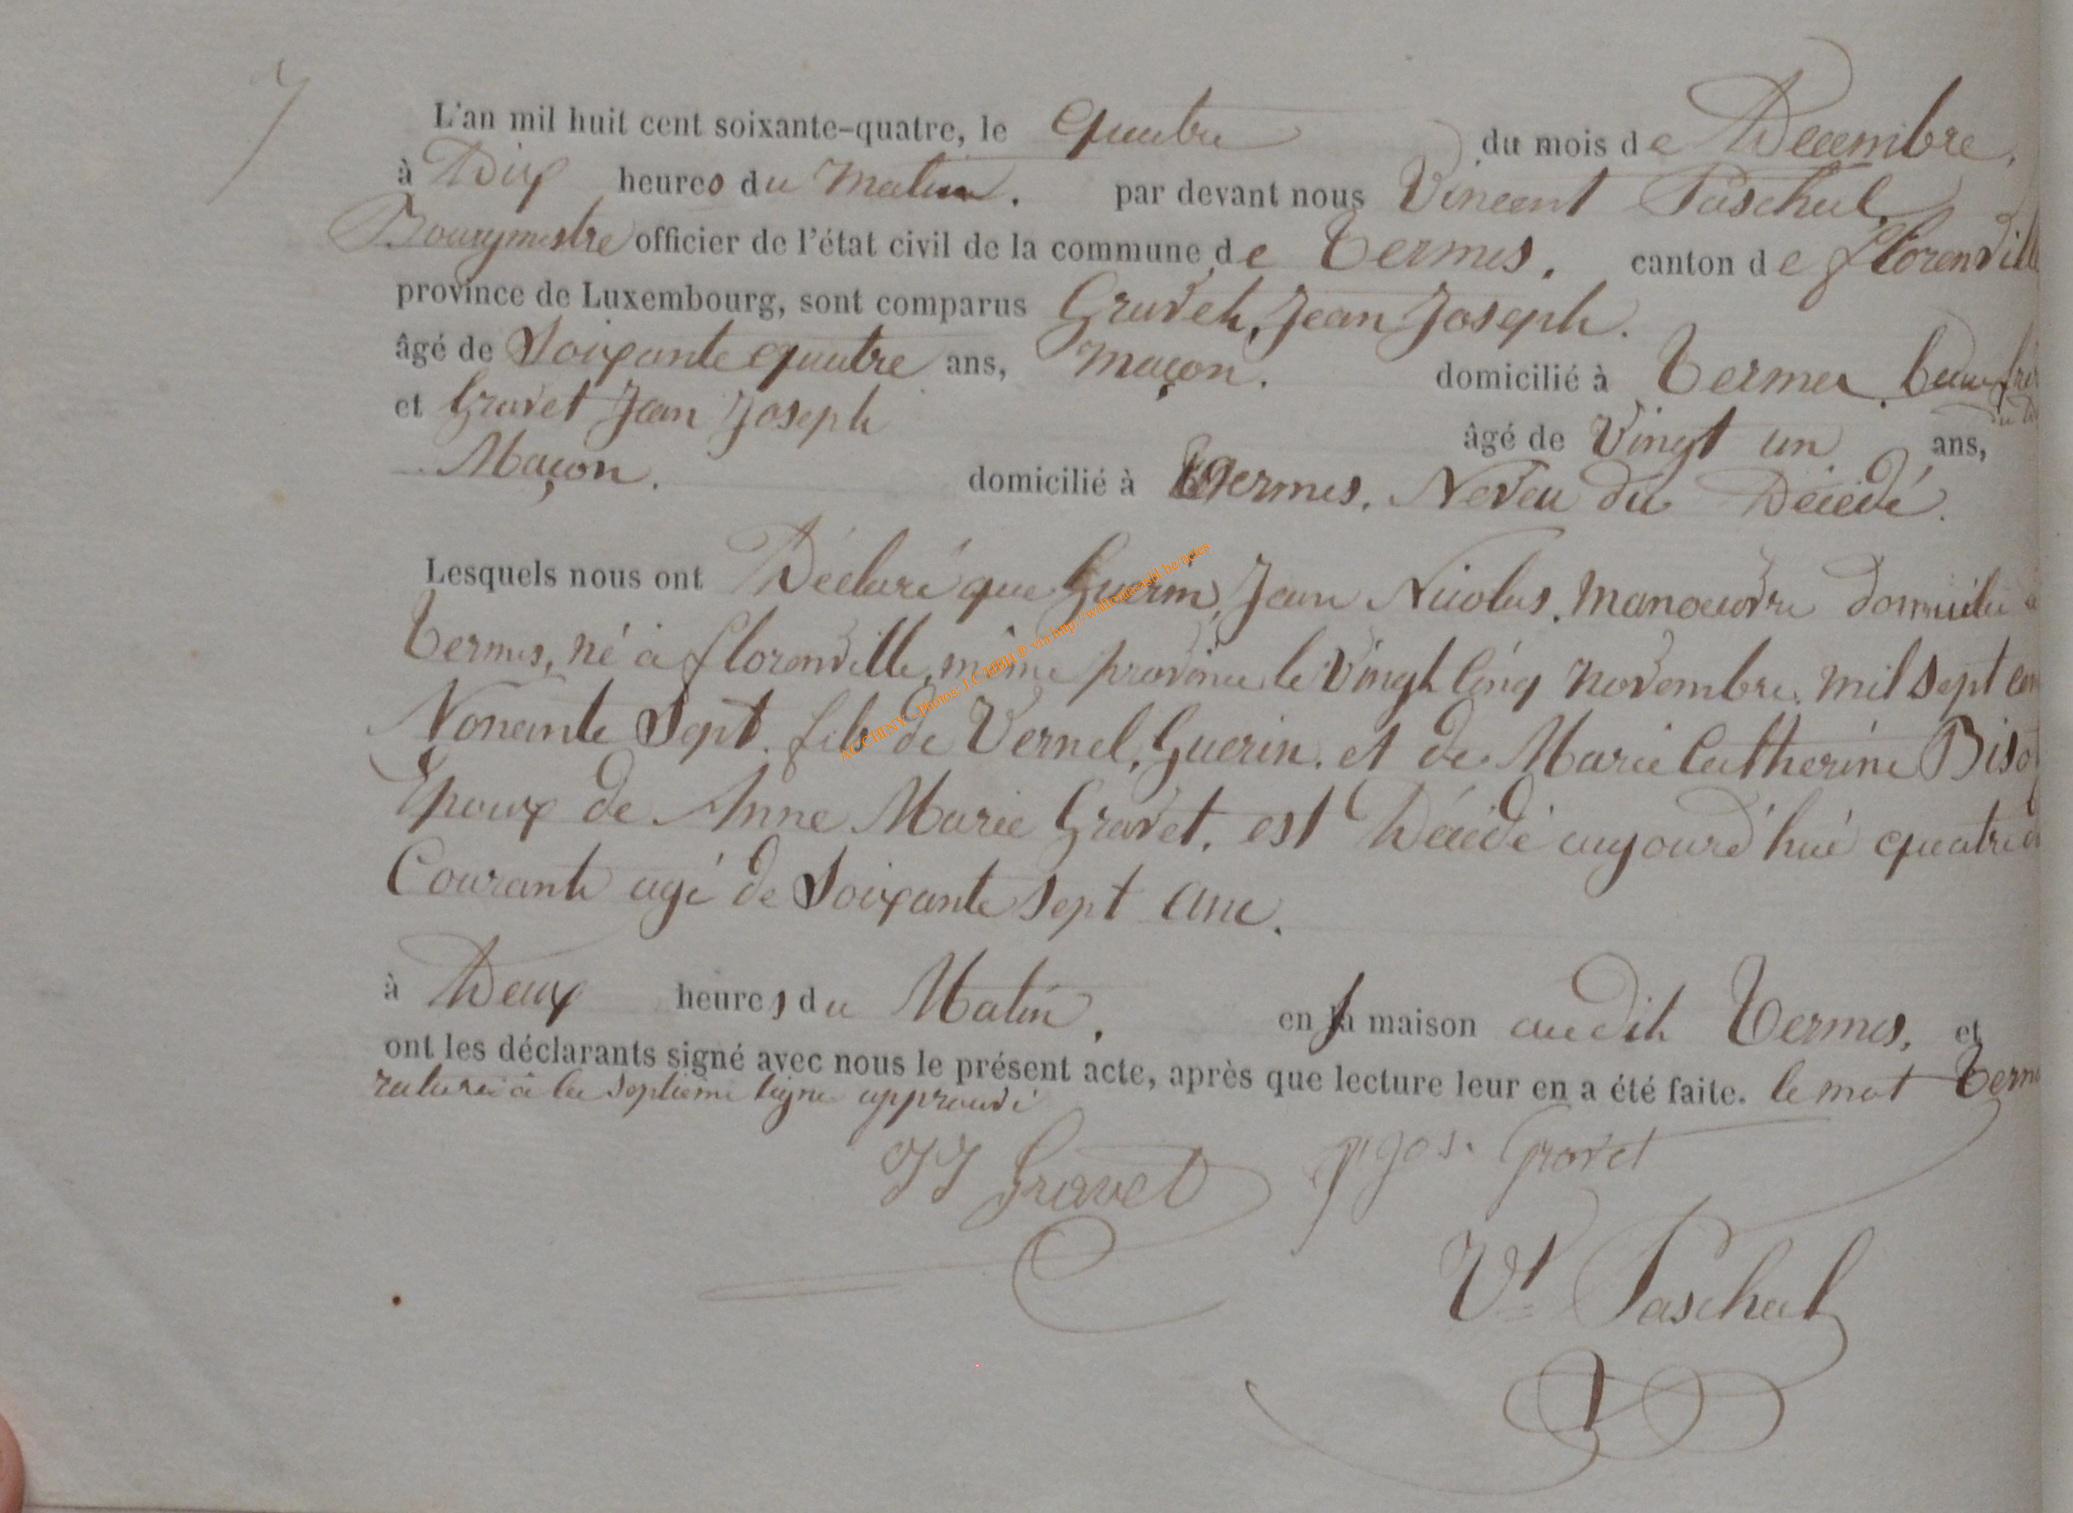 7
L'an mil huit cent soixante-quatre, le quatre du mois de Decembre,
à Dix heures du matin. par devant nous Vincent Paschal,
Bourgmestre officier de l'état civil de la commune de Termes. canton de florenvill
province de Luxembourg, sont comparus Gravet, Jean Joseph.
âgé de Soixante quatre ans, maçon. domicilié à Termes. beau frèr
du Dé
et Gravet Jean Joseph âgé de Vingt un ans,
Maçon. domicilié à Termes. Neveu du Décédé.
Lesquels nous ont Déclaré que Guerin, Jean Nicolas. manoeuvre domicilié à
Termes, né à florenville, même province le Vingt Cinq novembre. mil sept cen
Nonante Sept. fils de Vernel, Guerin. et de Marie Catherine Biso
Epoux de Anne Marie Gravet. est Décédé aujourd'hui quatre d
Courant agé de Soixante sept ans.
à Deux heures du Matin. en sa maison audit Termes, et
ont les déclarants signé avec nous le présent acte, après que lecture leur en a été faite. le mot Term
raturé à la septième ligne approuvé
JJ Gravet J. Jos. Gravet
Vt Paschal
ACCHINY - Photos J.CHBH © via http://wallonica.agl.be/actes